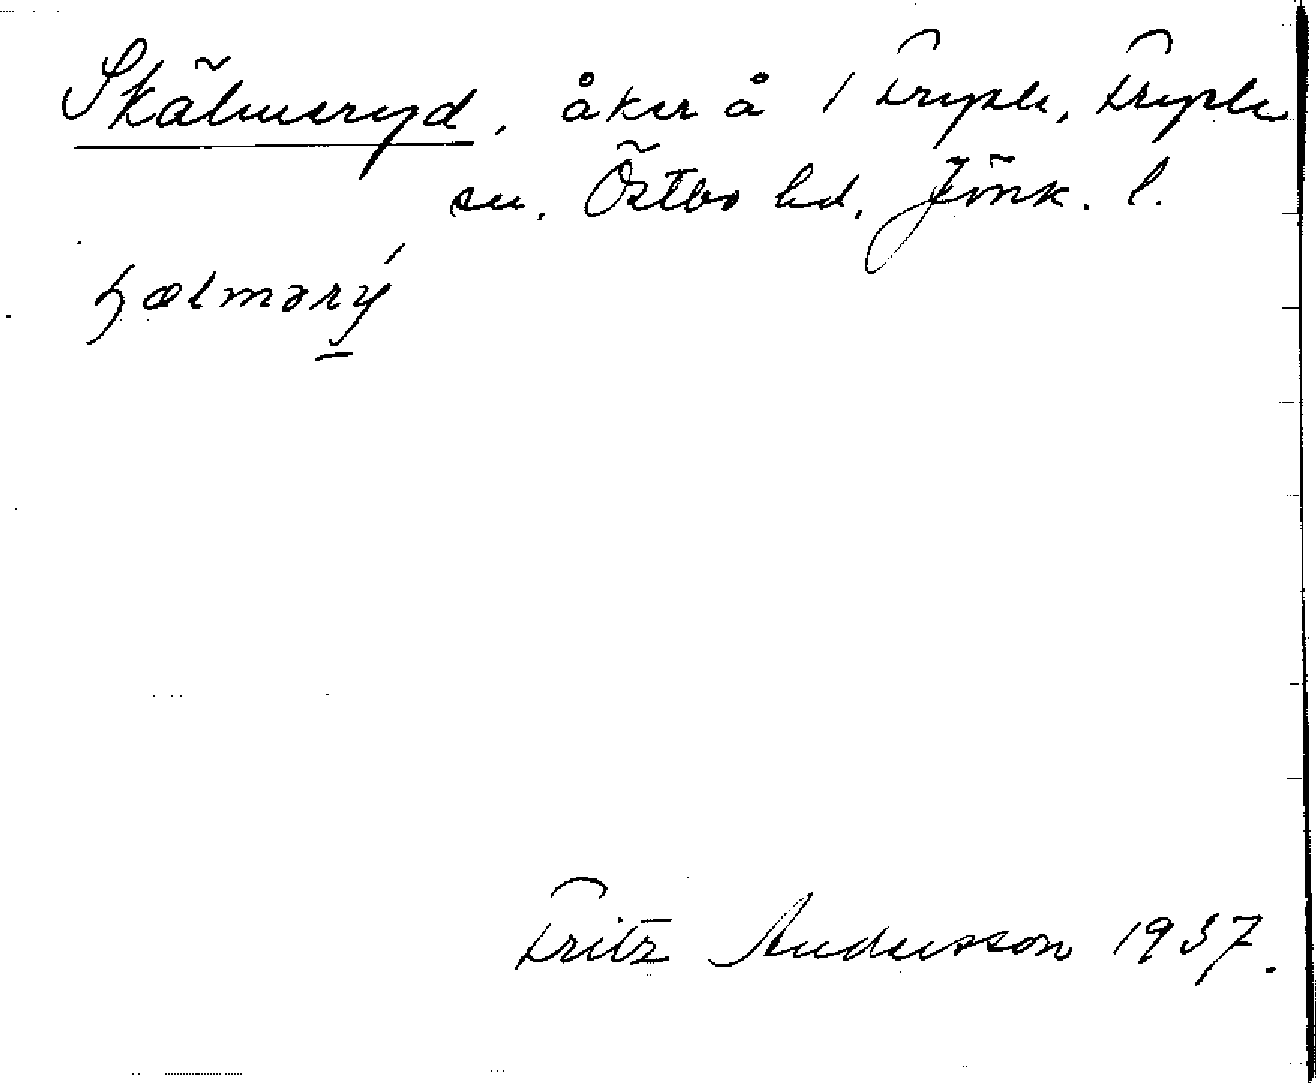 Skälmeryd, åker å 1 Fryele, Fryele
sn, Östbo hd, Jönk. l.
ɧælmərý
Fritz Andersson 1937.